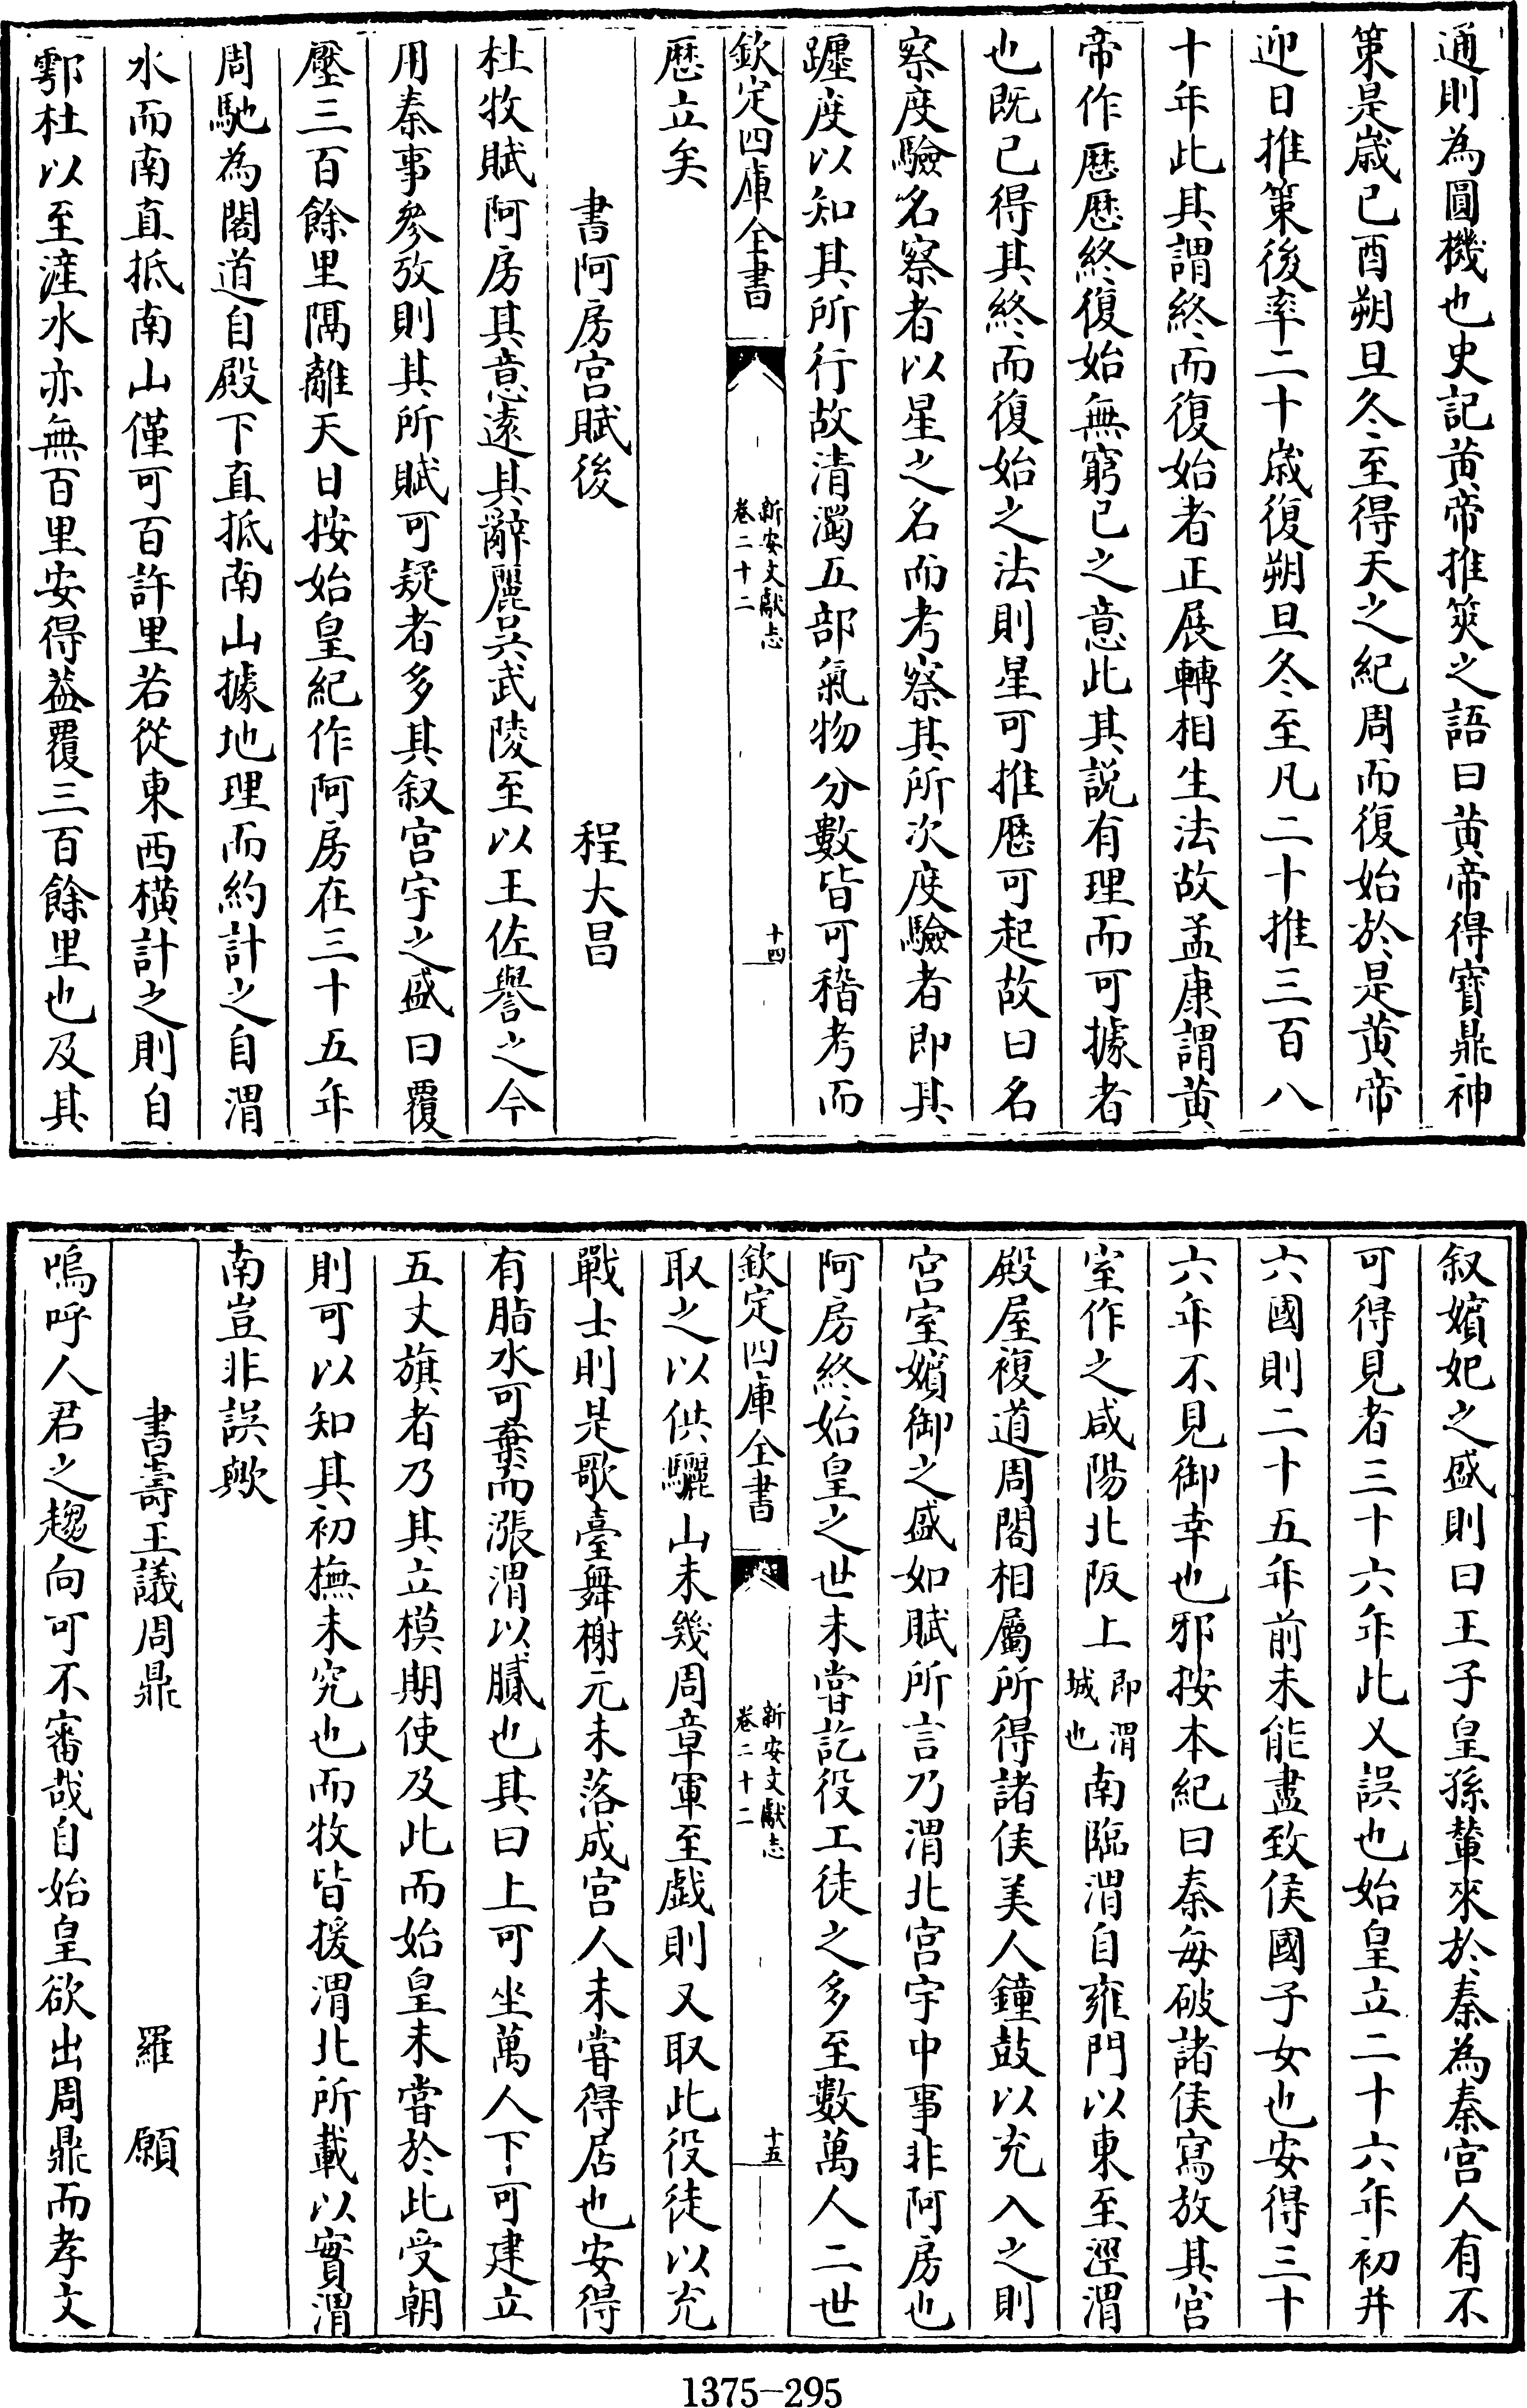 通則為圓機也史記黄帝推筴之語曰黄帝得寶鼎神
策是歲己酉朔旦冬至得天之紀周而復始於是黄帝
迎日推策後率二十歲復朔旦冬至凡二十推三百八
十年此其謂終而復始者正展轉相生法故孟康謂黄
帝作厯厯終復始無窮已之意此其説有理而可據者
也既已得其終而復始之法則星可推厯可起故曰名
察度驗名察者以星之名而考察其所次度驗者即其
躔度以知其所行故清濁五部氣物分數皆可稽考而
欽定四庫全書
新安文獻志
卷二十二
十四
厯立矣
書阿房宫賦後 程大昌
杜牧賦阿房其意逺其辭麗吳武陵至以王佐譽之今
用秦事參攷則其所賦可疑者多其叙宫宇之盛曰覆
壓三百餘里隔離天日按始皇紀作阿房在三十五年
周馳為閣道自殿下直抵南山據地理而約計之自渭
水而南直抵南山僅可百許里若從東西横計之則自
鄠杜以至滻水亦無百里安得葢覆三百餘里也及其
叙嬪妃之盛則曰王子皇孫輦來於秦為秦宫人有不
可得見者三十六年此又誤也始皇立二十六年初并
六國則二十五年前未能盡致侯國子女也安得三十
六年不見御幸也邪按本紀曰秦每破諸侯寫放其宫
室作之咸陽北阪上即渭城也南臨渭自雍門以東至涇渭
殿屋複道周閣相屬所得諸侯美人鐘鼓以充入之則
宫室嬪御之盛如賦所言乃渭北宫宇中事非阿房也
阿房終始皇之世未嘗訖役工徒之多至數萬人二世
欽定四庫全書
新安文獻志
卷二十二
十五
取之以供驪山未幾周章軍至戲則又取此役徒以充
戰士則是歌臺舞榭元未落成宫人未嘗得居也安得
有脂水可棄而漲渭以膩也其曰上可坐萬人下可建立
五丈旗者乃其立模期使及此而始皇未嘗於此受朝
則可以知其初撫未究也而牧皆援渭北所載以實渭
南豈非誤歟
書壽王議周鼎 羅願
嗚呼人君之趨向可不審哉自始皇欲出周鼎而孝文
1375-295